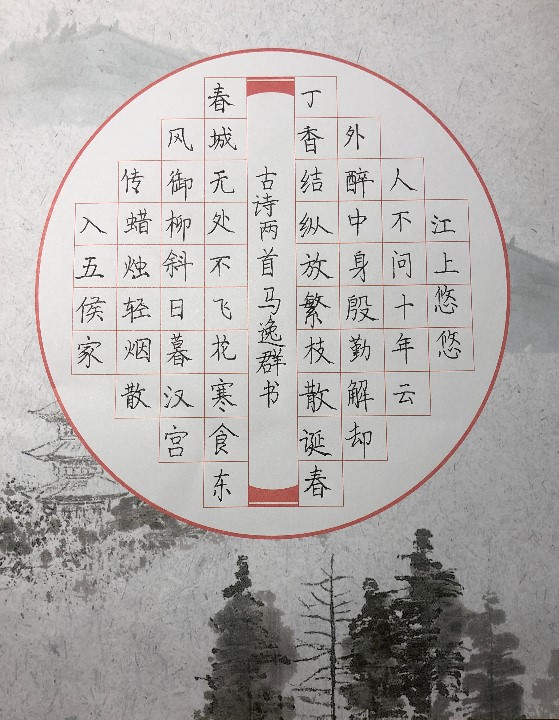 江上悠悠
人不问十年云
外醉中身殷勤解却
丁香结纵放繁枝散诞春
古诗两首马逸群书
春城无处不飞花寒食东
风御柳斜日暮汉宫
传蜡烛轻烟散
入五侯家